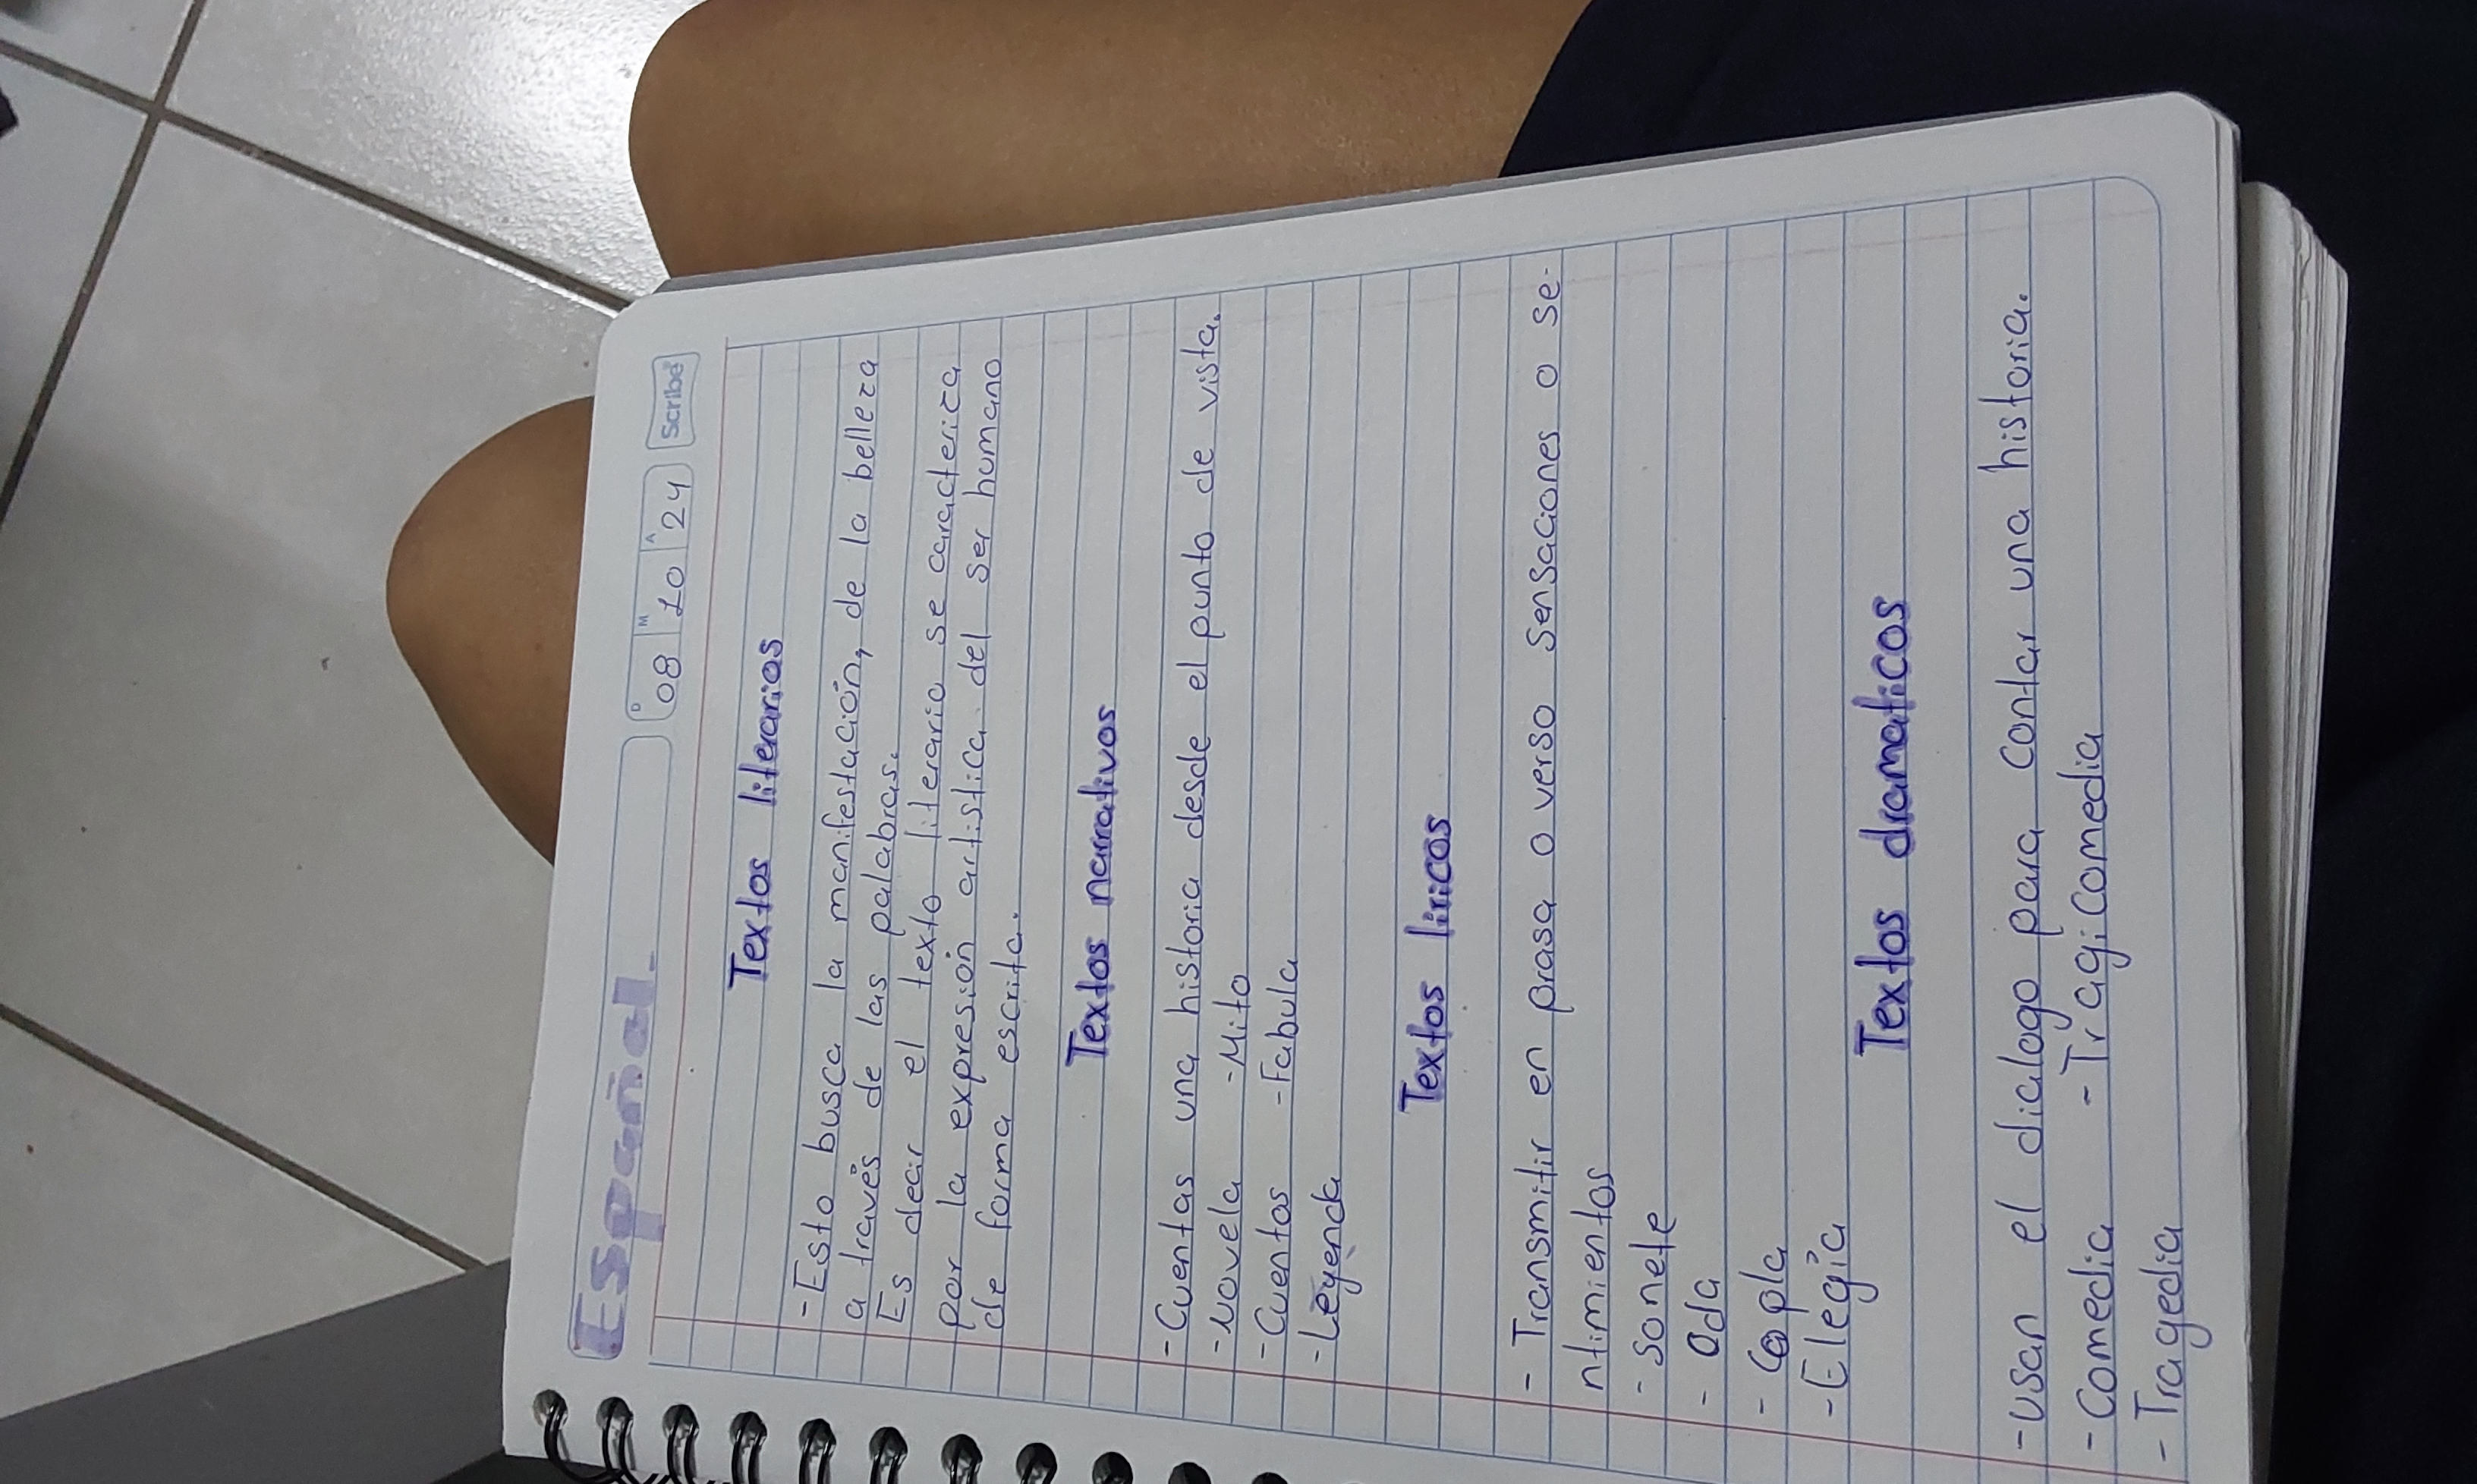 Español
D M A
08 10 24 Scribe
Textos literarios
-Esto busca la manifestación, de la belleza
a través de las palabras.
Es decir el texto literario se caracteriza
por la expresión artistica del ser humano
de forma escrita.
Textos narrativos
-Cuentas una historia desde el punto de vista.
-Novela -Mito
-Cuentos -Fabula
-Leyenda
Textos liricos
-Transmitir en prosa o verso sensaciones o se-
ntimientos
-Sonete
- Oda
- Copla
-Elegía
Textos dramaticos
-Usan el dialogo para contar una historia.
-Comedia -Tragicomedia
-Tragedia